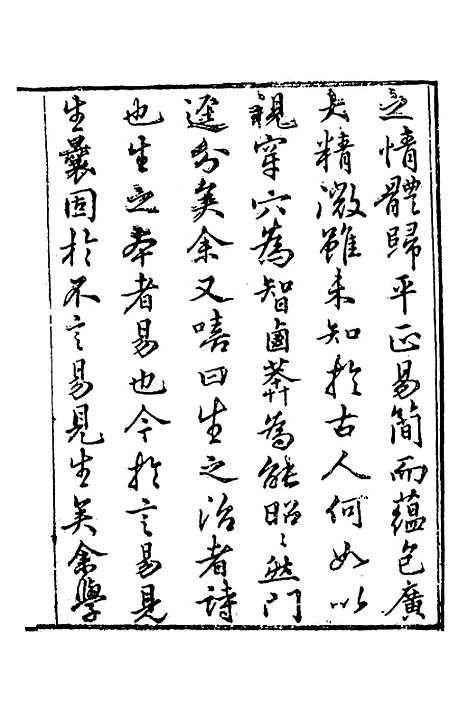 之情體歸平正易簡而蘊包廣
大精微雖未知於古人何如以
視穿穴為智鹵莽為能昭昭然門
逕分矣余又嘻曰生之治者詩
也生之本者易也今於言易見
生曩固於不言易見生矣余學